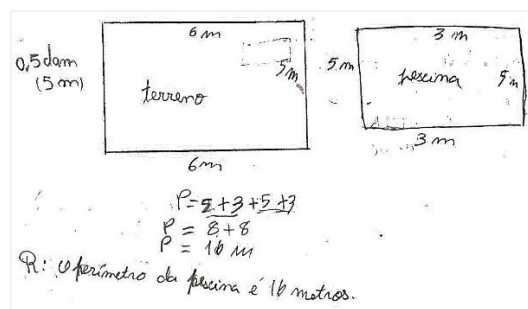 6 m
3 m
0,5 dam
(5 m)
terreno
5 m
5 m
piscina
5 m
6 m
3 m
P = 5 + 3 + 5 + 3
P = 8 + 8
P = 16 m
R: O perímetro da piscina é 16 metros.